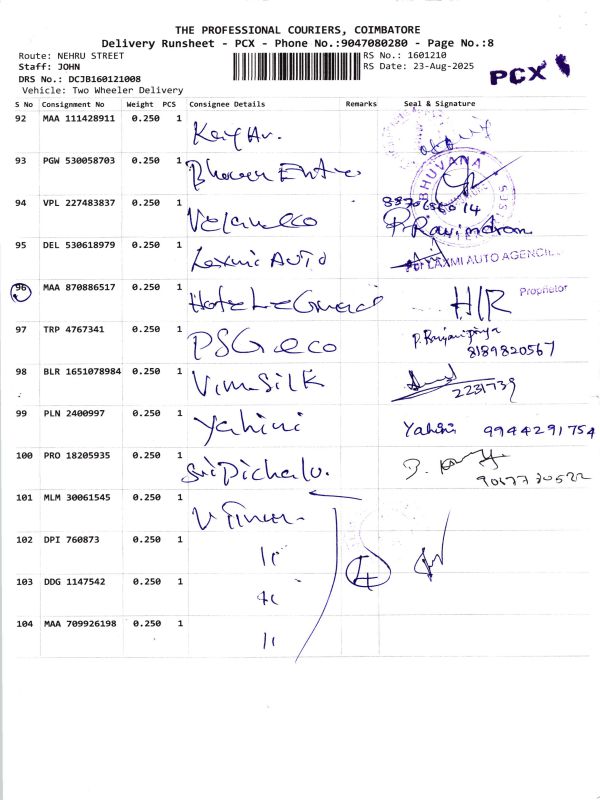 THE PROFESSIONAL COURIERS, COIMBATORE
Delivery Runsheet - PCX - Phone No.:9047080280 - Page No.:8
Route: NEHRU STREET
RS No.: 1601210
Staff: JOHN
RS Date: 23-Aug-2025
PCX
DRS No.: DCJB160121008
Vehicle: Two Wheeler Delivery
S No Consignment No Weight PCS Consignee Details Remarks Seal & Signature
92 MAA 111428911 0.250 1
93 PGW 530058703 0.250 1
BHUVANA
94 VPL 227483837 0.250 1
P. Ravindran
95 DEL 530618979 0.250 1 Laxmi AUTO
For LAXMI AUTO AGENCIES
Proprietor
96 MAA 870886517 0.250 1 H/R
97 TRP 4767341 0.250 1 PSG eco
8189820567
98 BLR 1651078984 0.250 1 Vima Silk
2231739
99 PLN 2400997 0.250 1 Yahini Yahini 9944291754
100 PRO 18205935 0.250 1
101 MLM 30061545 0.250 1
102 DPI 760873 0.250 1 4
103 DDG 1147542 0.250 1
104 MAA 709926198 0.250 1